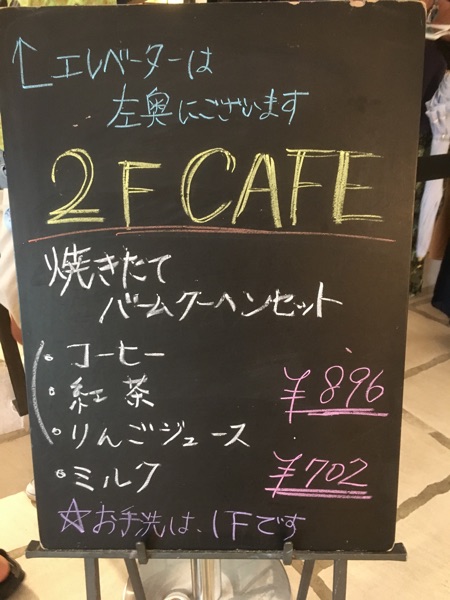 エレベーターは
左奥にございます
2F CAFE
焼きたて
バームクーヘンセット
・コーヒー
・紅茶 ¥896
・りんごジュース
・ミルク ¥702
☆お手洗は、1Fです